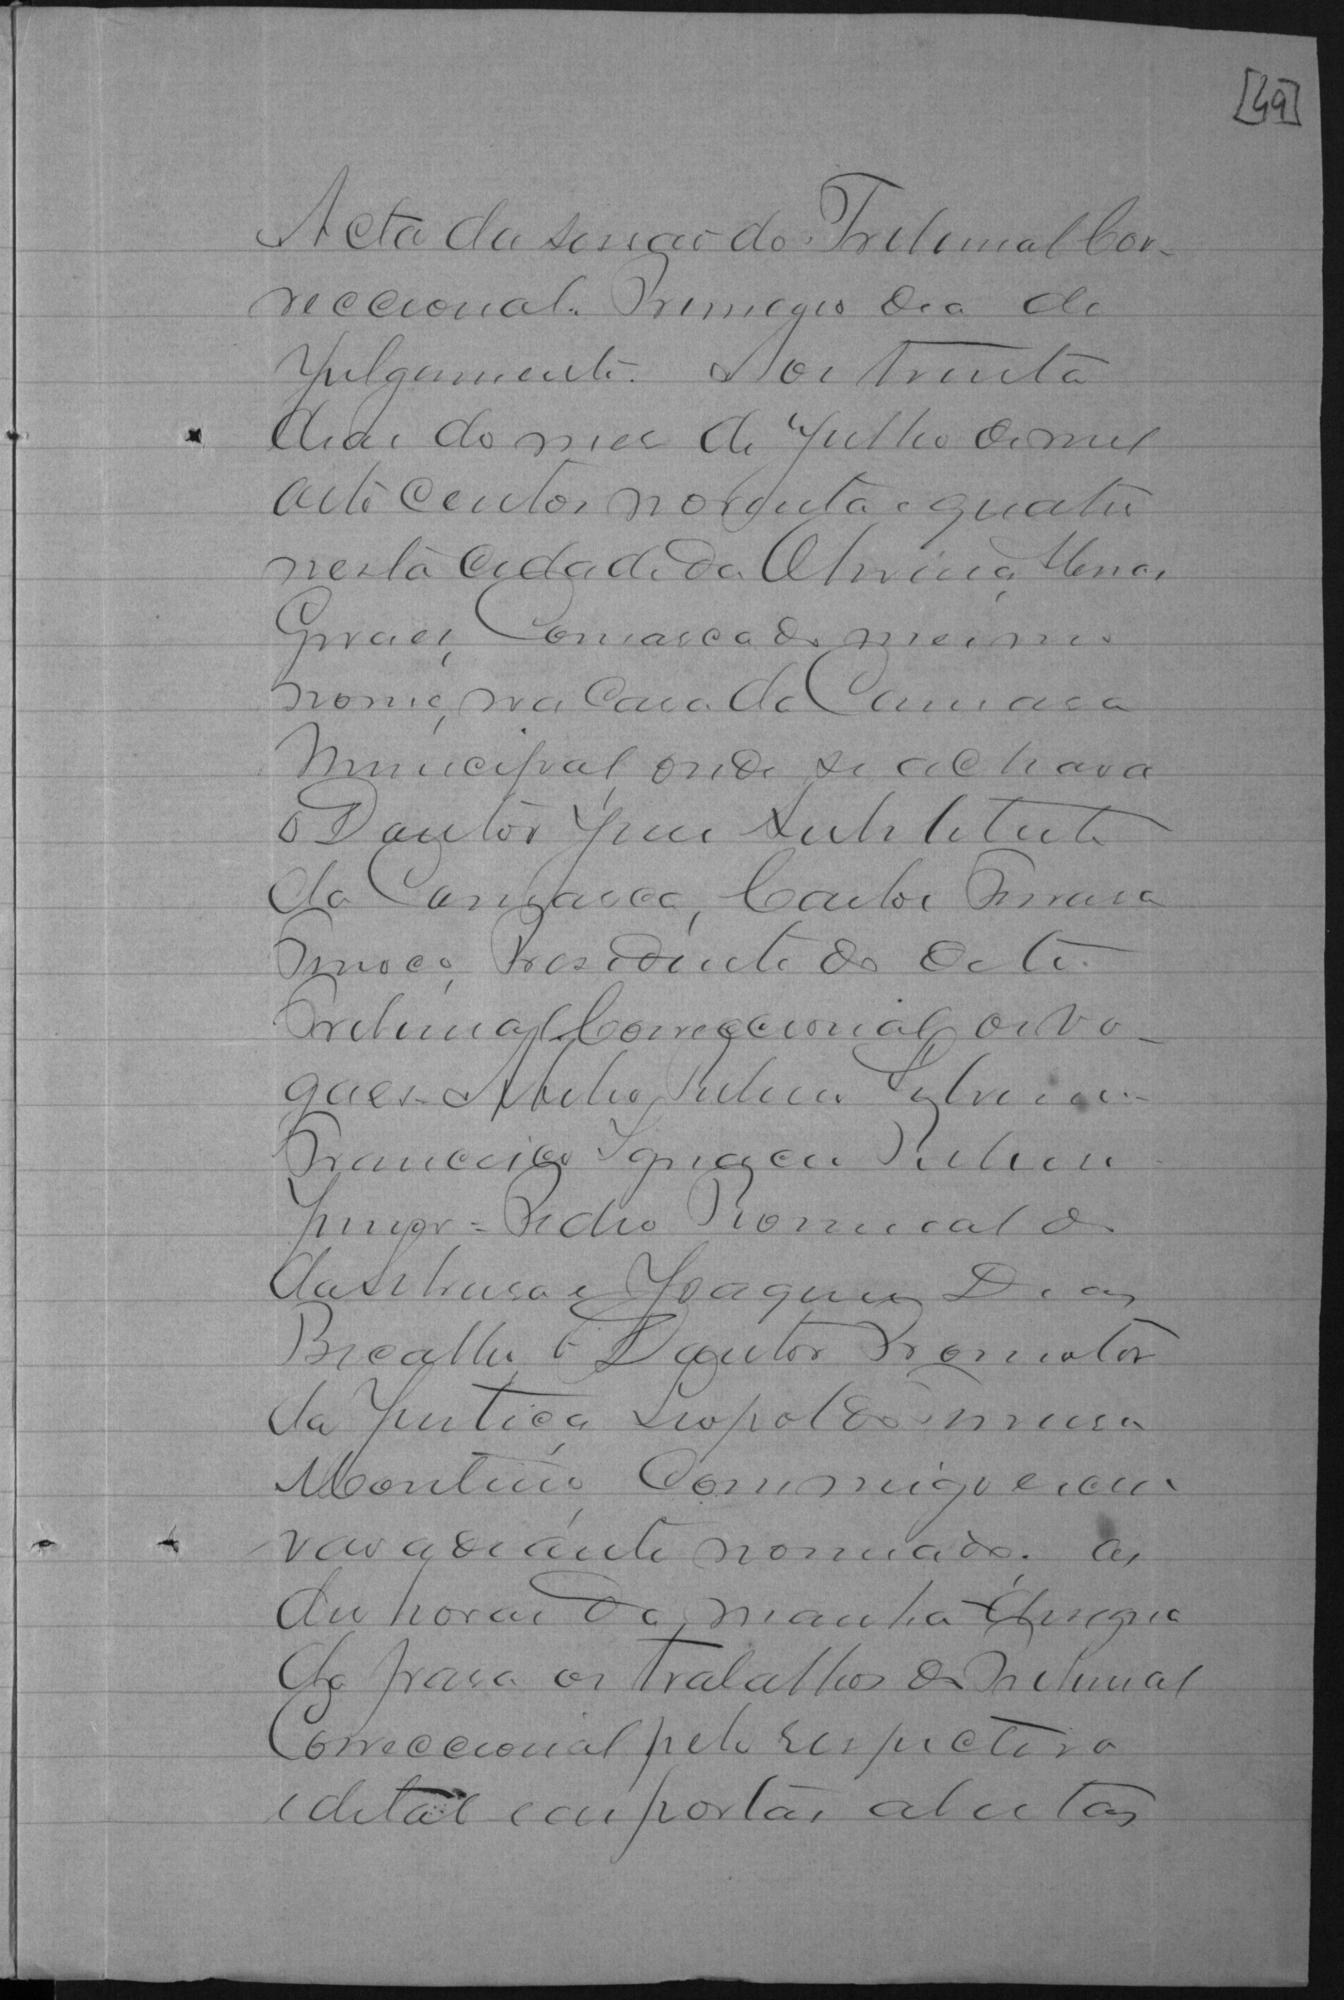 [49]
Acta da sessão do Tribunal Cor-
reccional. Primeyro dia de
Julgamento. Aos trinta
dias do mez de Julho de mil
oito centos noventa e quatro
nesta Cidade da Oliveira, Minas
Geraes, Comarca do mesmo
nome, na Casa da Camara
Municipal, onde se achava
o Doutor Juiz Substituto
da Comarca, Carlos Ferreira
Presidente do deste
Tribunal Correccional, os vo-
gaes - Ribeiro Sylveira -
Francisco Ignacio Ribeiro
Junyor = Pedro Romualdo
da Silveira e Joaquim Dias
Bicalho, o Doutor Promotor
da Justiça, Leopoldo Ferreira
Monteiro, Commigo escri
vão adiante nomeado, as
des horas da manhã
da para os trabalhos do Tribunal
Correccional pelo respectivo
edital e as portas abertas